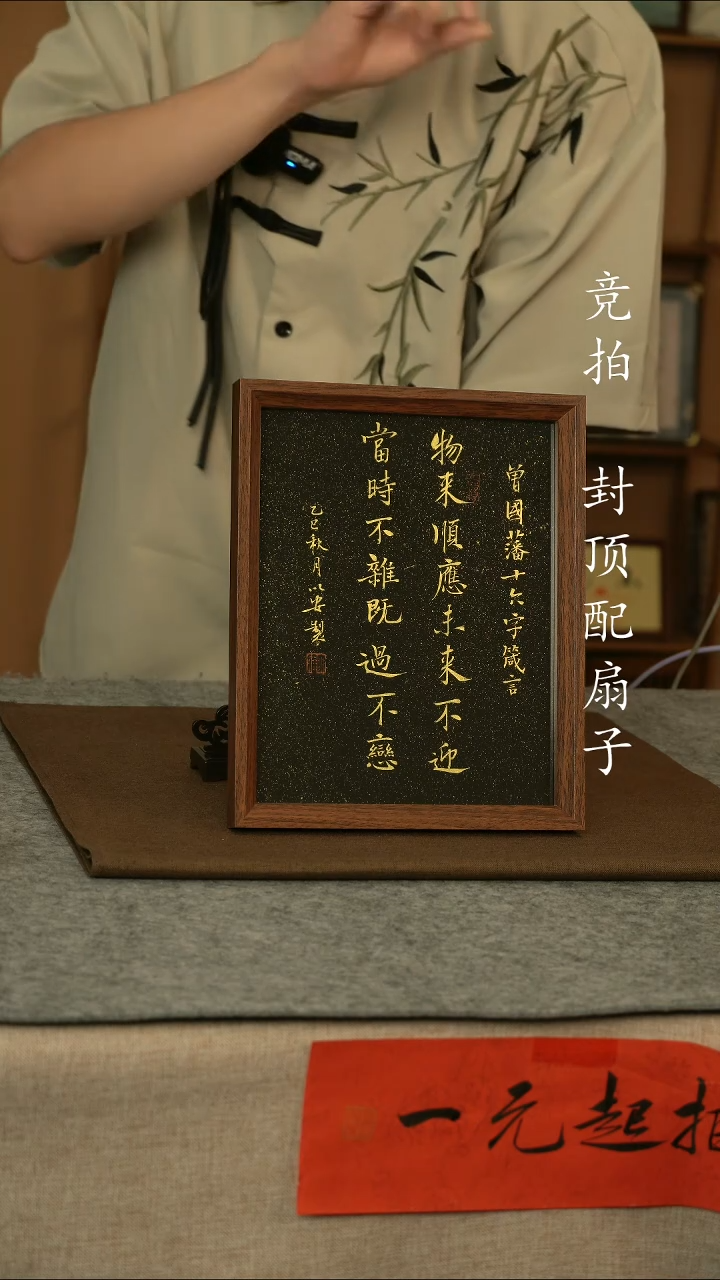 曾國藩十六字箴言
物来順應未来不迎
當時不雜既過不戀
乙巳秋月以安製
竞拍
封顶配扇子
一元起拍